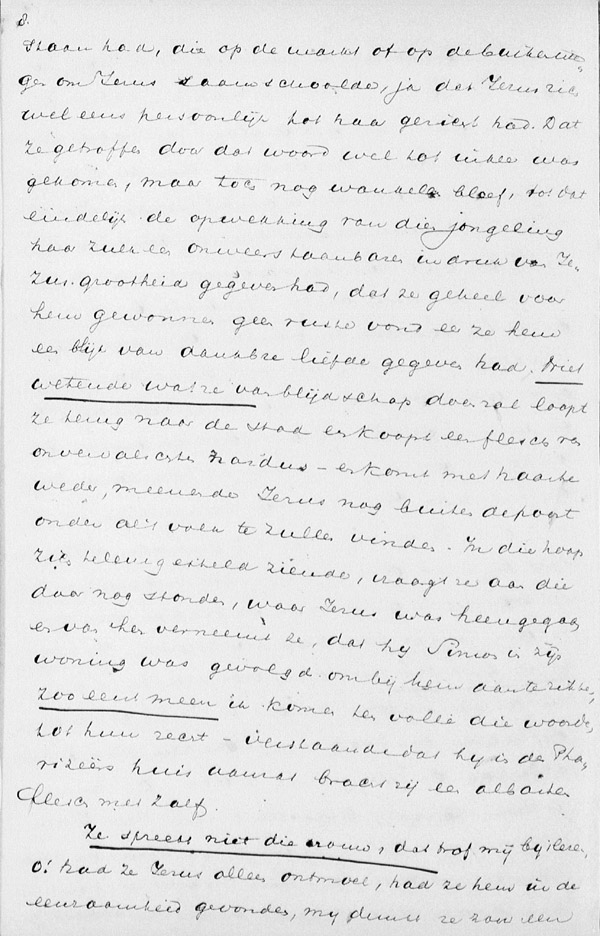 8.
staan had, die op de markt of op de buitenwe-
gen om Jezus saamschoolde, ja dat Jezus zich
wel eens persoonlijk tot haar gericht had. Dat
ze getroffen door dat woord wel tot inkeer was
gekomen, maar toch nog wankelen bleef, tot dat
eindelijk de opwekking van dien jongeling
haar zulk een onweerstaanbaren indruk van Je-
zus grootheid gegeven had, dat ze geheel voor
hem gewonnen geen ruste vond eer ze hem
een blijk van dankbre liefde gegeven had. Niet
wetende wat ze van blijdschap doen zal loopt
ze terug naar de stad en koopt een flesch van
onvervalschte nardus – en komt met haaste
weder, meenende Jezus nog buiten de poort
onder al 't volk te zullen vinden. In die hoop
zich teleurgesteld ziende, vraagt ze aan die
daar nog stonden, waar Jezus was heengegaan
en van hen verneemt ze, dat hy Simon in zijn
woning was gevolgd om bij hem aan te zitten,
zoo eerst meen ik komen ten volle die woorden
tot hun recht – verstaande dat hy in des Pha-
rizeërs huis aanzat bracht zij een albasten
flesch met zalf.
Ze spreekt niet die vrouw, dat trof mij by 't lezen,
o! had ze Jezus alleen ontmoet, had ze hem in de
eenzaamheid gevonden, my dunkt ze zou een